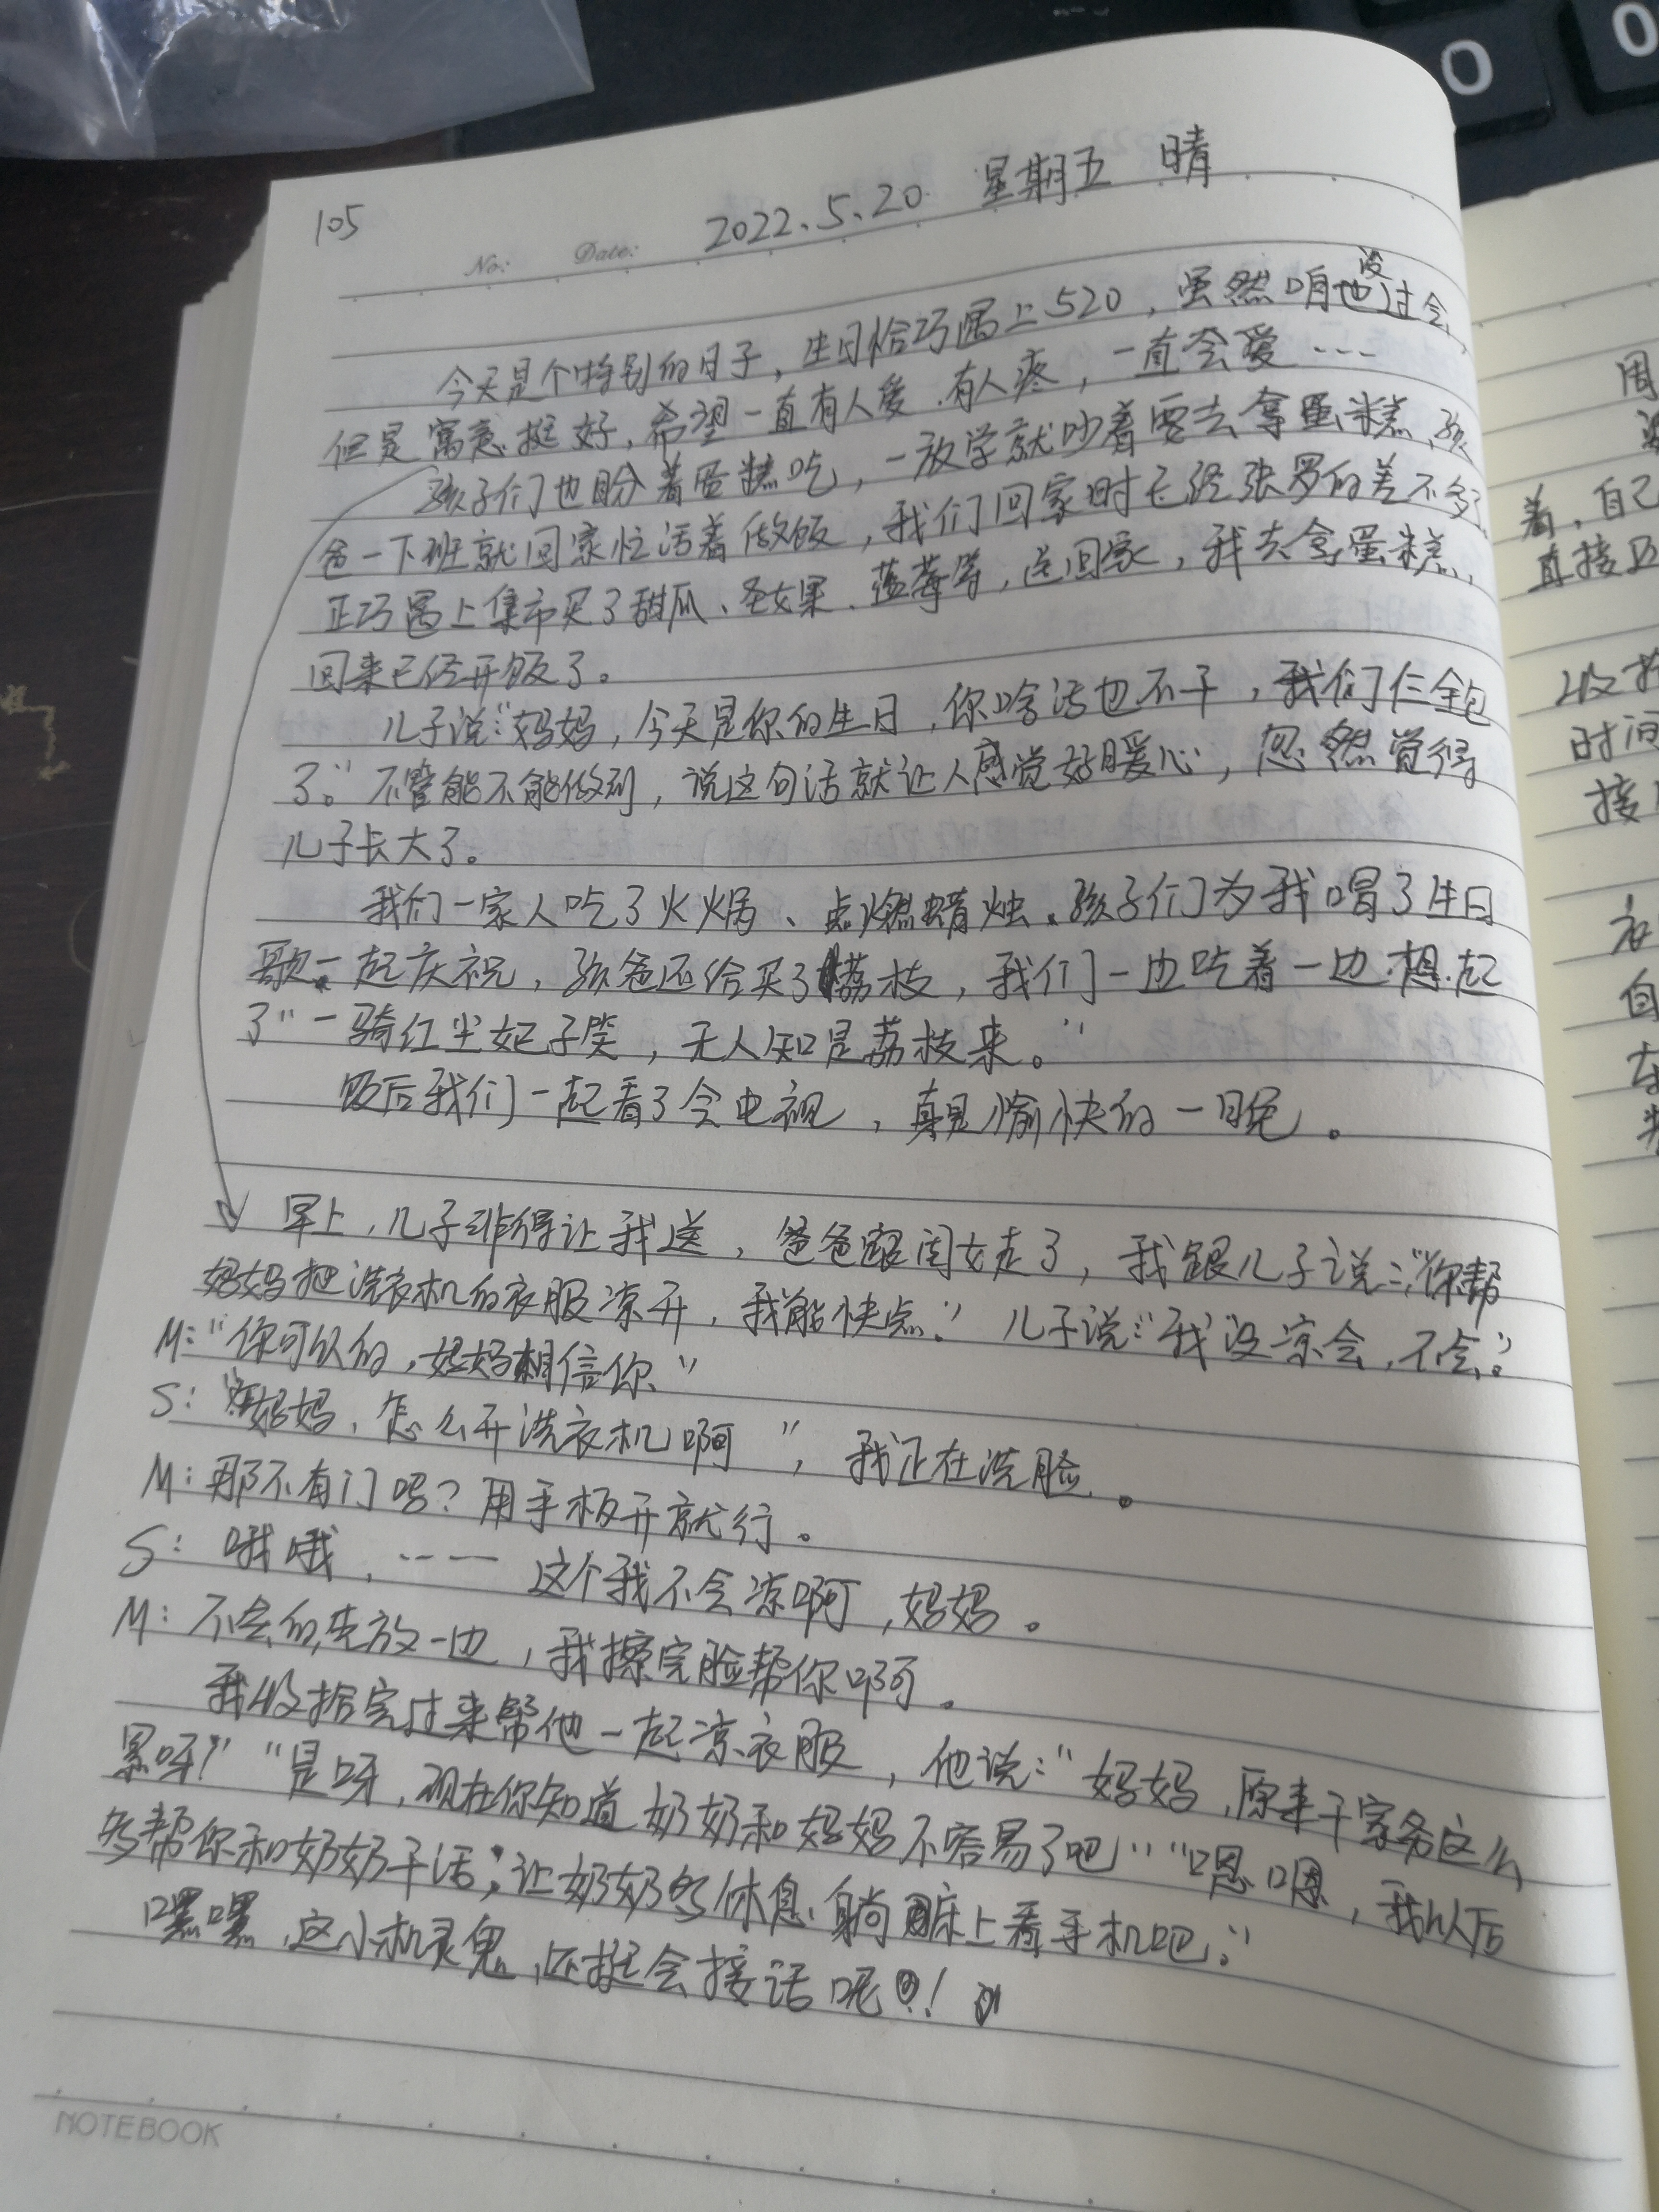 105
No: Date: 2022.5.20 星期五 晴
今天是个特别的日子，生日恰巧遇上520，虽然咱也没过会，
但是寓意挺好，希望一直有人爱、有人疼，一直会爱……
孩子们也盼着蛋糕吃，一放学就吵着要去拿蛋糕，孩
爸一下班就回家忙活着做饭，我们回家时已经张罗的差不多了，
正巧遇上集市买了甜瓜、圣女果、蓝莓等，送回家，我去拿蛋糕，
回来已经开饭了。
儿子说：“妈妈，今天是你的生日，你啥活也不干，我们仨全包
了。”不管能不能做到，说这句话就让人感觉好暖心，忽然觉得
儿子长大了。
我们一家人吃了火锅、点燃蜡烛。孩子们为我唱了生日
歌一起庆祝，孩爸还给买了荔枝，我们一边吃着一边想起
了“一骑红尘妃子笑，无人知是荔枝来。”
饭后我们一起看了会电视，真是愉快的一晚。
早上，儿子非得让我送，爸爸跟闺女走了，我跟儿子说：“你帮
妈妈把洗衣机的衣服凉开，我能快点。”儿子说：“我没凉会，不会。”
M：“你可以的，妈妈相信你”
S：“妈妈，怎么开洗衣机啊”，我正在洗脸。
M：那不有门吗？用手板开就行。
S：哦哦，…… 这个我不会凉啊，妈妈。
M：不会的先放一边，我擦完脸帮你啊。
我收拾完过来帮他一起凉衣服，他说：“妈妈，原来干家务这么
累呀！”“是呀，现在你知道奶奶和妈妈不容易了吧”“嗯嗯，我以后
多帮你和奶奶干活，让奶奶多休息，躺床上看手机吧。”
嘿嘿，这小机灵鬼，还挺会接话呢！
NOTEBOOK
周
着，自己
直接
收拾
时间
接
衣
自
0
0